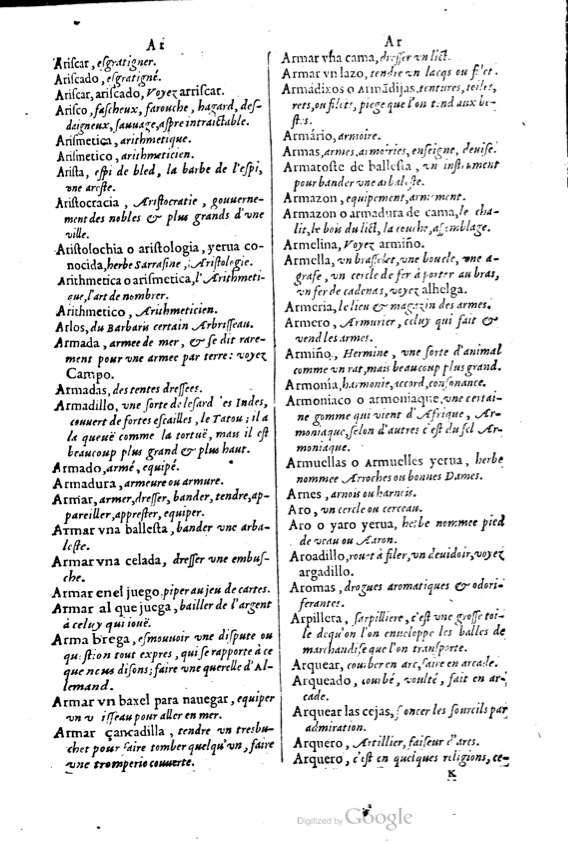 Ar
Ariſcar, eſgratigner.
Ariſcado, eſgratigné.
Ariſcar, ariſcado, Voyez arriſcar.
Ariſco, faſcheux, farouche, hagard, deſ-
daigneux, ſauuage, aſpre intraictable.
Ariſmetica, arithmetique.
Ariſmetico, arithmeticien.
Ariſta, eſpi de bled, la barbe de l'eſpi,
vne areſte.
Ariſtocracia, Ariſtocratie, gouuerne-
ment des nobles & plus grands d'vne
ville.
Ariſtolochia o ariſtologia, yerua co-
nocida, herbe Sarraſine, Ariſtologie.
Arithmetica o ariſmetica, l'Arithmeti-
que, l'art de nombrer.
Arithmetico, Arithmeticien.
Arlos, du Barbaris certain Arbriſſeau.
Armada, armee de mer, & ſe dit rare-
ment pour vne armee par terre: voyez
Campo.
Armadas, des tentes dreſſees.
Armadillo, vne ſorte de leſard des Indes,
couuert de fortes eſcailles, le Tatou; il a
la queuë comme la tortuë, mais il eſt
beaucoup plus grand & plus haut.
Armado, armé, equipé.
Armadura, armeure ou armure.
Armar, armer, dreſſer, bander, tendre, ap-
pareiller, appreſter, equiper.
Armar vna balleſta, bander vne arba-
leſte.
Armar vna celada, dreſſer vne embuſ-
che.
Armar enel juego, piper au jeu de cartes.
Armar al que juega, bailler de l'argent
à celuy qui iouë.
Arma brega, eſmouuoir vne diſpute ou
queſtion tout expres, qui ſe rapporte à ce
que nous diſons; faire vne querelle d'Al-
lemand.
Armar vn baxel para nauegar, equiper
vn vaiſſeau pour aller en mer.
Armar çancadilla, tendre vn tresbu-
chet pour faire tomber quelqu'vn, faire
vne tromperie couuerte.
Ar
Armar vña cama, dreſſer vn lict.
Armar vn lazo, tendre vn lacqs ou filet.
Armadixos o armadijas, tentures, toiles,
rets, ou filets, piege que l'on tend aux be-
ſtes.
Armário, armoire.
Armas, armes, armoiries, enſeigne, deuiſe.
Armatoſte de balleſta, vn inſtrument
pour bander vne arbaleſte.
Armazon, equipement, armement.
Armazon o armadura de cama, le cha-
lit, le bois du lict, la couche, aſſemblage.
Armelina, Voyez armiño.
Armella, vn braſſelet, vne boucle, vne a-
grafe, vn cercle de fer à porter au bras,
vn fer de cadenas, voyez alhelga.
Armeria, le lieu & magazin des armes.
Armero, Armurier, celuy qui fait &
vend les armes.
Armiño, Hermine, vne ſorte d'animal
comme vn rat, mais beaucoup plus grand.
Armonia, harmonie, accord, conſonance.
Armoniaco o armoniaque, vne certai-
ne gomme qui vient d'Afrique, Ar-
moniaque, ſelon d'autres c'eſt du ſel Ar-
moniaque.
Armuellas o Armuelles yerua, herbe
nommee Arroches ou bonnes Dames.
Arnes, arnois ou harnois.
Aro, vn cercle ou cerceau.
Aro o yaro yerua, herbe nommee pied
de veau ou Aaron.
Aroadillo, rouet à filer, vn deuidoir, voyez
argadillo.
Aromas, drogues aromatiques & odori-
ferantes.
Arpillera, ſarpilliere, c'eſt vne groſſe toi-
le dequ'on l'on enueloppe les balles de
marchandiſe que l'on tranſporte.
Arquear, courber en arc, faire en arcade.
Arqueado, courbé, voulté, fait en ar-
cade.
Arquear las cejas, froncer les ſourcils par
admiration.
Arquero, Artillier, faiſeur d'arcs.
Arquero, c'eſt en quelques religions, ce-
K
Digitized by Google